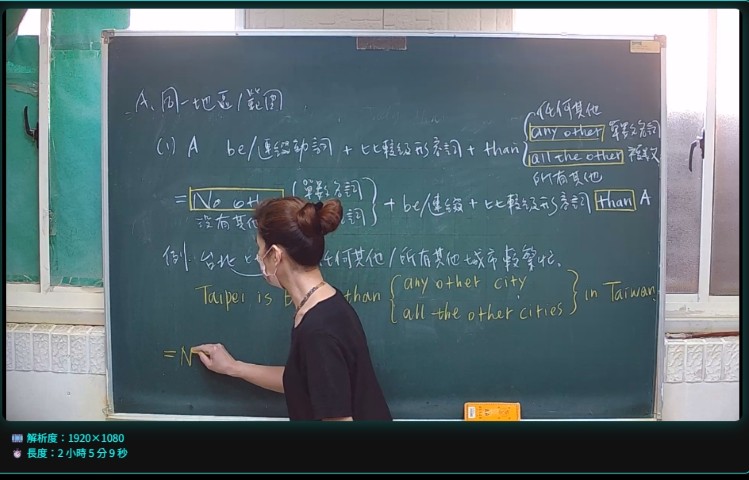 A、同一地區/範圍
任何其他
(1) A be/連綴動詞 + 比較級形容詞 + than { any other 單數名詞
all the other 複數
所有其他
= No oth { 單數名詞 詞 } + be/連綴 + 比較級形容詞 than A
沒有其他
例 台北 任何其他/所有其他城市較繁忙。
Taipei is than { any other city
all the other cities } in Taiwan.
= N
解析度：1920×1080
長度：2 小時 5 分 9 秒